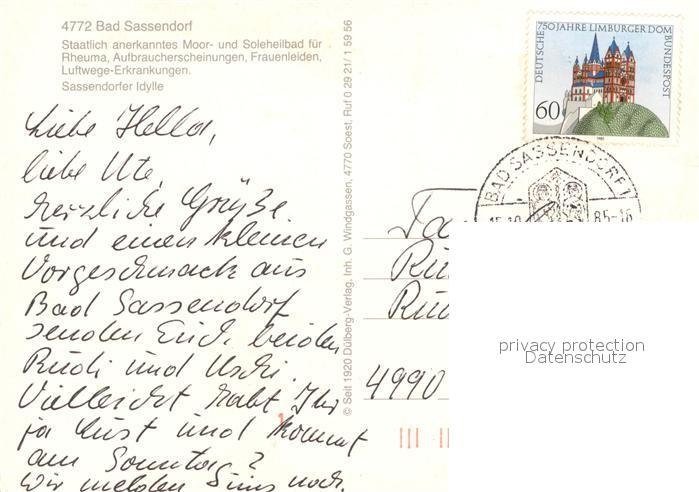 4772 Bad Sassendorf
Staatlich anerkanntes Moor- und Soleheilbad für
Rheuma, Aufbraucherscheinungen, Frauenleiden,
Luftwege-Erkrankungen.
Sassendorfer Idylle
Liebe Hella,
liebe Ute,
herzliche Grüße
und einen kleinen
Vorgeschmack aus
Bad Sassendorf
senden Euch beiden
Rudi und Uschi.
Vielleicht habt Ihr
ja Lust und kommt
am Sonntag?
Wir melden uns noch.
© Seit 1920 Dülberg-Verlag, Inh. G. Windgassen, 4770 Soest, Ruf 0 29 21/ 1 59 56
DEUTSCHE BUNDESPOST
750 JAHRE LIMBURGER DOM
60
BAD SASSENDORF 1
85-16
Fa
4990
privacy protection
Datenschutz